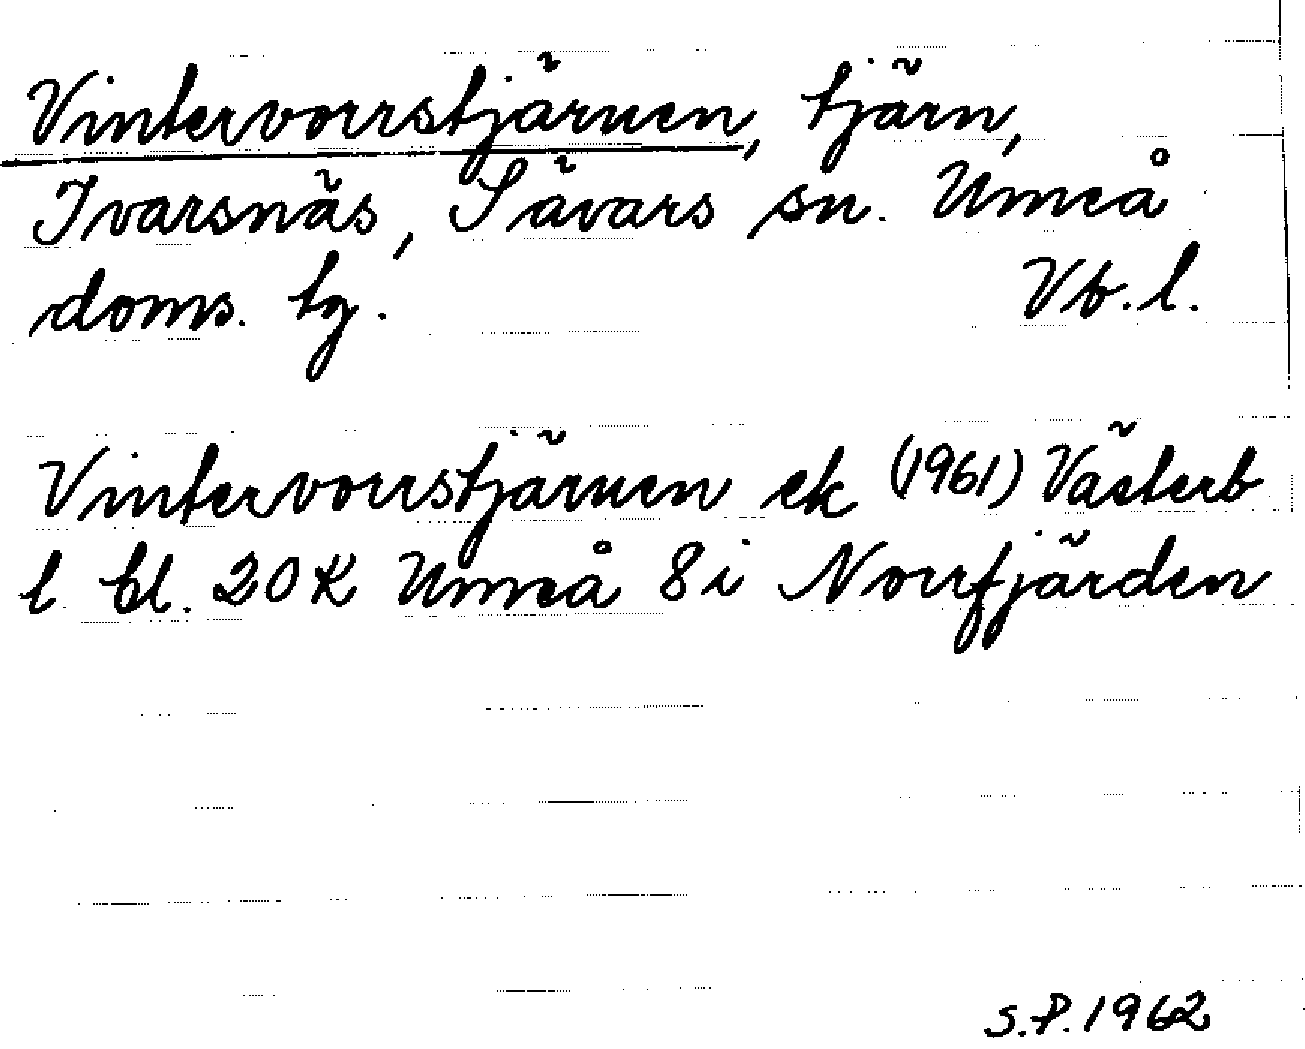 Vintervorrstjärnen, tjärn,
Ivarsnäs, Sävars sn. Umeå
doms. tg. Vb. l.
Vintervorrstjärnen ek (1961) Västerb
l bl. 20 K Umeå 8 i Norrfjärden
S.P. 1962